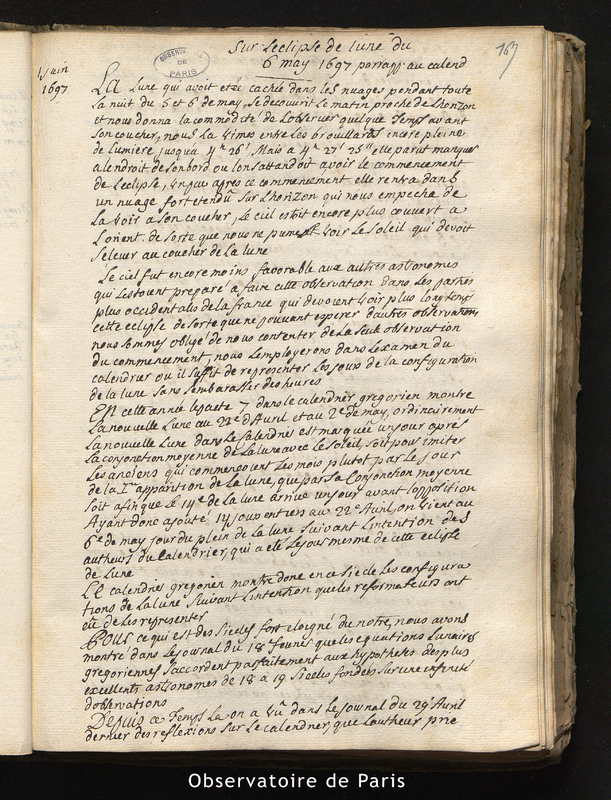 Sur L'eclipse de lune du
6 may 1697 par rapp. au calend
167
1 Juin
1697
OBSERVAT.
DE
PARIS
La Lune qui avoit etée caché dans les nuages pendant toute
La nuit du 5 et 6 de may, se decouvrit Le matin proche de Lhorizon
et nous donna la commodité de Lobserver quelque temps avant
son coucher, nous La vimes entre Les brouillards encore pleine
de Lumiere jusqu'a 4h 26' Mais a 4h 27' 25" elle parut manquer
a lendroit de son bord ou lon sattandoit avoir le commencement
de Leclipse, un peu apres ce commencement elle rentra dans
un nuage fort etendu sur Lhorizon qui nous empecha de
La voir a son coucher, Le ciel estoit encore plus couvert a
Lorient. de sorte que nous ne pumes voir Le soleil qui devoit
se lever au coucher de la lune
Le ciel fut encore moins favorable aux autres astonomes
qui sestoient preparé a faire cette observation dans Les parties
plus occidentales de la france qui devoient voir plus longtemps
cette eclipse de sorte que ne pouvant esperer dautres observations
nous sommes obligé de nous contenter de La seule observation
du commencement, nous Lemployerons dans Lexamen du
calendrier ou il suffit de representer Les jours de la configuration
de la lune sans sembarasser des heures
En cette année Lepacte 7 dans le calendrier gregorien montre
La nouvelle Lune au 22e d'Avril et au 2e de may, ordinairement
La nouvelle Lune dans Le calendrier est marquée un jour apres
La conjonction moyenne de La lune avec Le soleil, soit pour imiter
Les anciens qui commencoient Les mois plutot par Le jour
de la 1re apparition de La lune, que par sa Conjonction moyenne
soit afin que Le 14e de la lune arrive un jour avant Lopposition
Ayant donc ajouté 14 jours entiers au 22e Avril, on vient au
6e de may jour du plein de La lune suivant Lintention des
autheurs du Calendrier, qui a eté Le jour mesme de cette eclipse
de Lune
Le calendrier gregorien montre donc en ce siecle Les configura
tions de La lune suivant Lintention que les reformateurs ont
eu de Les representer
Pour ce qui est des siecles fort eloigné du notre, nous avons
montré dans Le journal du 18 fevrier que les equations Lunaires
gregoriennes saccordent parfaitement aux hypotheses des plus
excellents astonomes de 18 a 19 siecles fondées sur une infinité
dobservations
Depuis ce temps La on a vû dans Le journal du 29 Avril
dernier des reflexions sur Le calendrier, que Lautheur prie
Observatoire de Paris